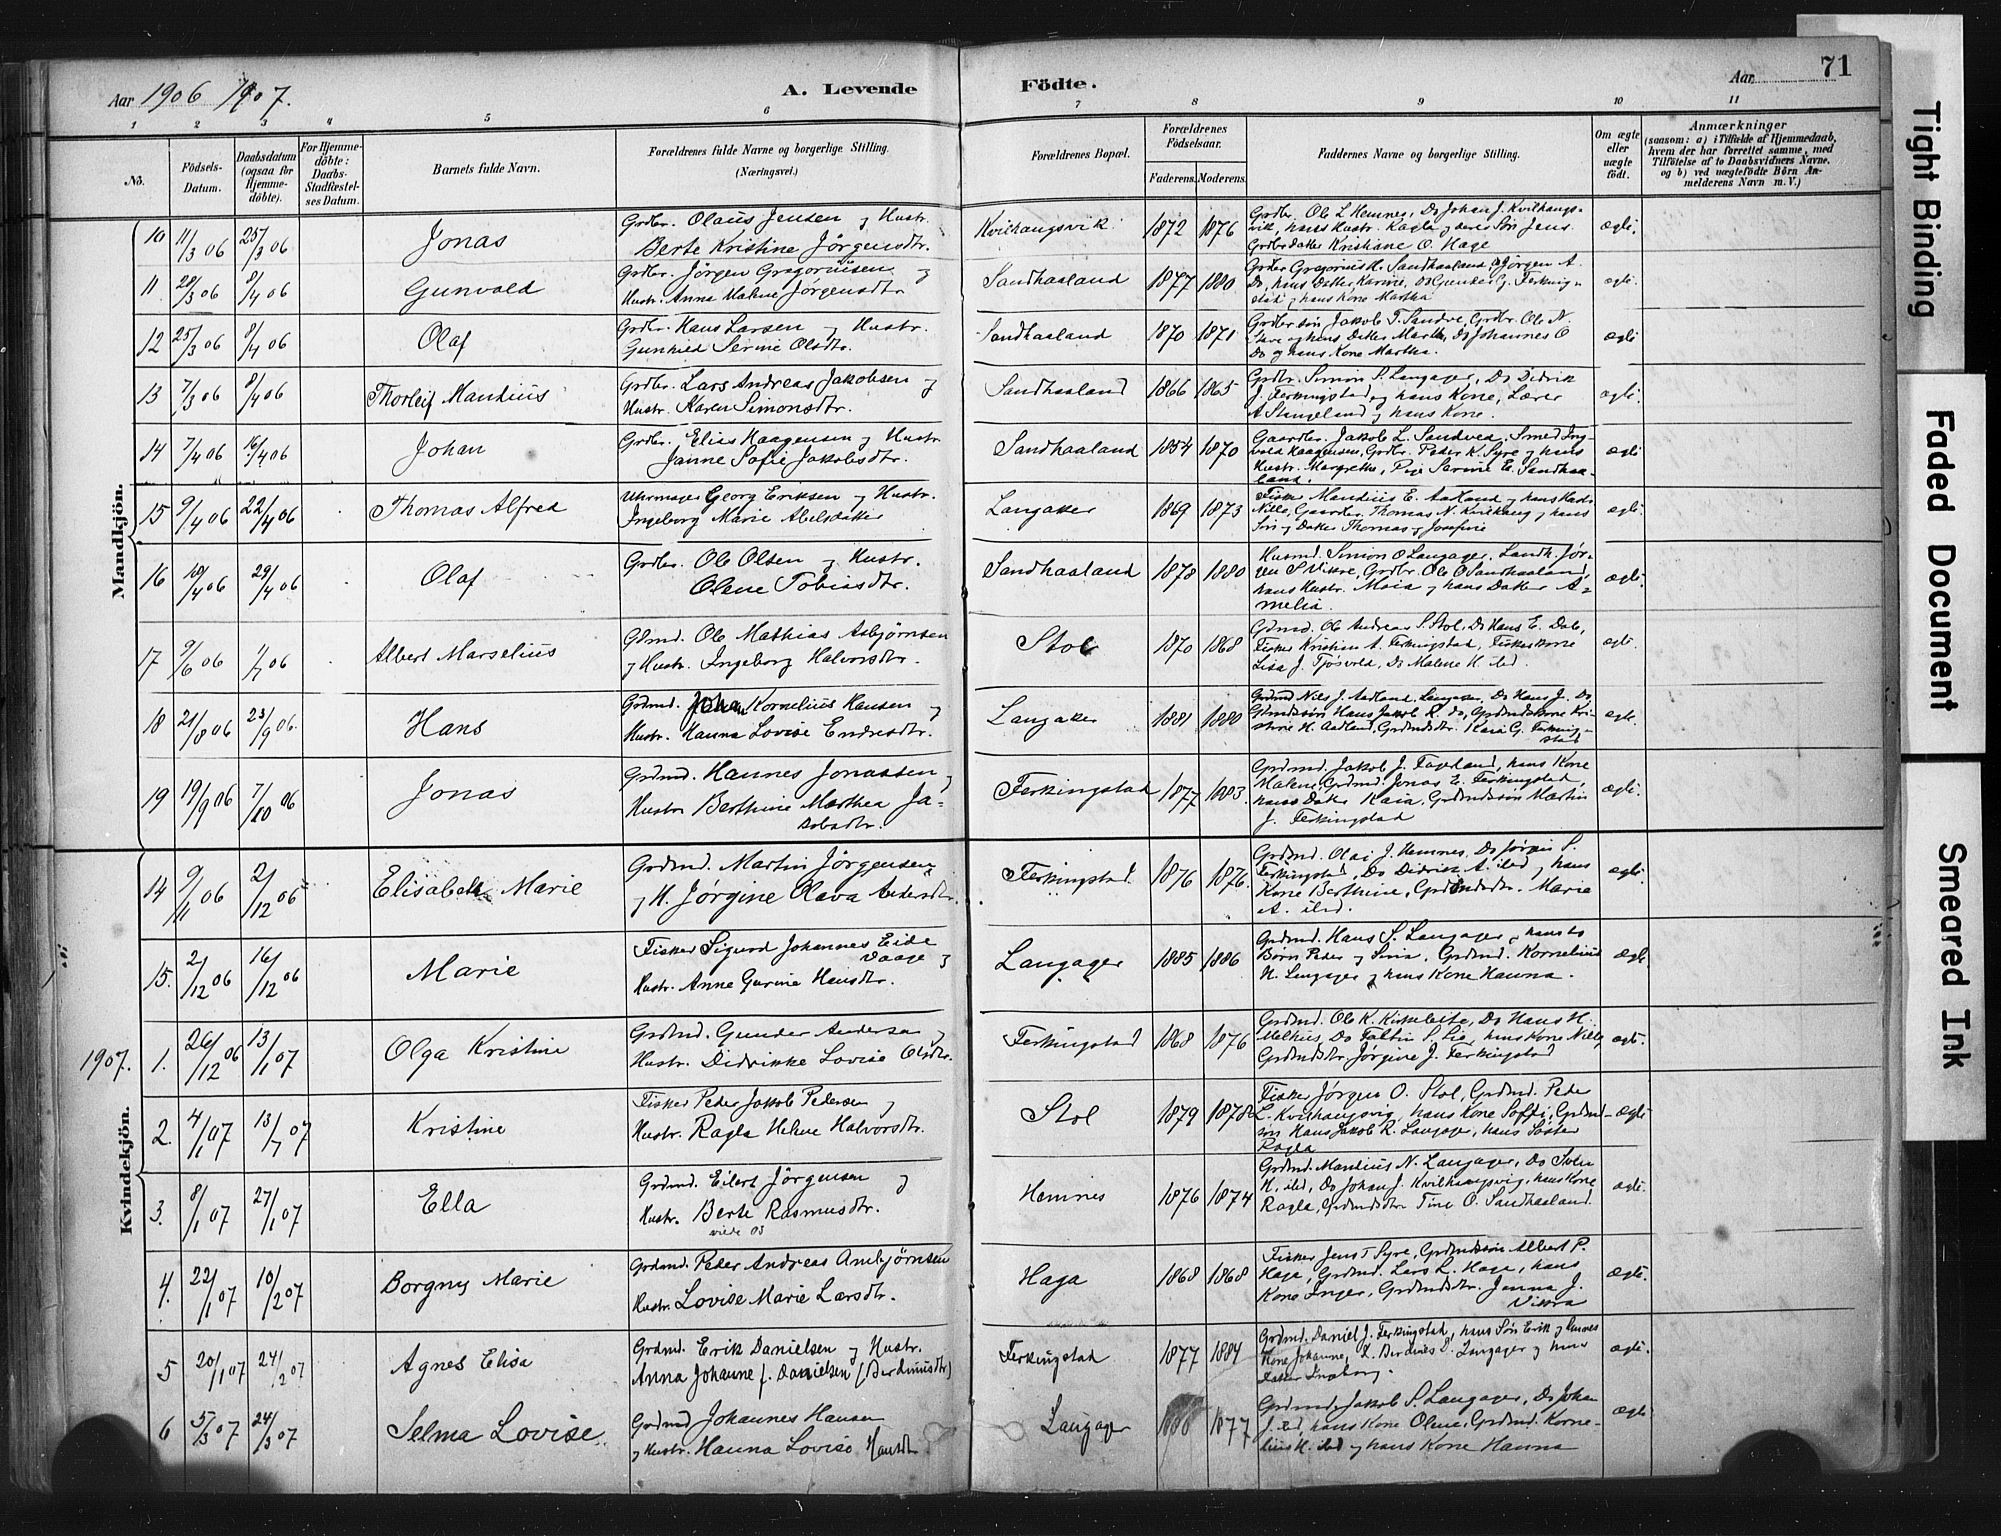 Aar 1906 1907.
A. Levende
Födte.
Aar
71
1 2 3 4 5 6 7 8 9 10 11
No.
Födsels-
Datum.
Daabsdatum
(ogsaa for
Hjemme-
döbte).
For Hjemme-
döbte:
Daabs-
Stadfæstel-
ses Datum.
Barnets fulde Navn.
Forældrenes fulde Navne og borgerlige Stilling.
(Næringsvei.)
Forældrenes Bopæl.
Forældrenes
Födselsaar.
Faderens. Moderens.
Faddernes Navne og borgerlige Stilling.
Om ægte
eller
uægte
födt.
Anmærkninger
(saasom: a) i Tilfælde af Hjemmedaab,
hvem der har forrettet samme, med
Tilföielse af to Daabsvidners Navne,
og b) ved uægtefödte Börn An-
melderens Navn m. V.)
Mandkjön.
10 11/3 06 25/3 06 Jonas
Grdbr. Olaus Jensen og Hustr.
Berte Kristine Jörgensdtr.
Kvilhaugsvik 1872 1876
Grdbr. Ole L Hemnes, Do Johan J. Kvilhaugs-
vik, hans Hustr. Ragla og deres Sön Jens
Grdbr datter Kristiane O. Hage
ægte.
11 20/3 06 8/4 06 Gunvald
Grdbr. Jörgen Gregoriusen og
Hustr. Anna Malene Jörgensdtr
Sandhaaland 1877 1880
ægte.
12 25/3 06 8/4 06 Olaf
Grdbr. Hans Larsen og Hustr.
Gunhild Serine Olsdtr.
Sandhaaland 1870 1871
Do og hans Kone Martha.
ægte
13 7/3 06 8/4 06 Thorleif Mandius
Grdbr. Lars Andreas Jakobsen og
Hustr. Karen Simonsdtr.
Sandhaaland 1866 1865
Grdbr. Simon P. Langager, Do Didrik
J. Ferkingstad og hans Kone, Lærer
A Stangeland og hans Kone.
ægte.
14 7/4 06 16/4 06 Johan
Grdbr. Elias Haagensen og Hustr
Janne Sofie Jakobsdtr.
Sandhaaland 1854 1870
Gaardbr. Jakob L. Sandved, Smed Ing-
vald Haagensen, Grdbr. Peder K. Syre og hans
Hustr. Margrethe, Pige Serine E. Sandhaa-
land.
ægte
15 9/4 06 22/4 06 Thomas Alfred
Uhrmager Georg Eriksen og Hustr.
Ingeborg Marie Abelsdatter
Langaker 1869 1873
Fisker Mandius E. Aadland og hans Hustr
Nille, Gaardbr. Thomas N. Kvilhaug og hans
Sön og Datter Thomas og Josefine
ægte.
16 10/4 06 29/4 06 Olaf
Grdbr. Ole Olsen og Hustr.
Olene Tobiasdtr.
Sandhaaland 1878 1880
Husmd. Simon O Langager. Landh. Jör-
gen S Vikre, Grdbr. Ole O Sandhaaland,
hans Hustr. Maia og hans Datter A-
melia.
ægte.
17 9/6 06 1/7 06 Albert Marselius
Gdmd. Ole Mathias Asbjörnsen
og Hustr. Ingeborg Halvorsdtr.
Stol 1870 1868
Gdmd. Ole Andreas S. Stol, Do Hans E. Dale,
Fisker Kristian A. Ferkingstad, Fiskerkone
Lisa J. Tjösvold, Do Malene H ibd.
ægte.
18 21/8 06 23/9 06. Hans
Grdmd. Johan Kornelius Hansen og
Hustr. Hanna Lovise Endresdtr.
Langaker 1881 1880
Grdmd Nils J. Aadland, Langager, Do Hans J. Do
Gdmdssön Hans Jakob R. do, Grdmdskone Kri-
stine H. Aadland, Grdmdsdtr. Kaia G. Ferking-
stad
ægte.
19 19/9 06 7/10 06 Jonas
Grdmd. Hannes Jonassen og
Hustr Berthine Marthea Ja-
kobsdtr.
Ferkingstad 1877 1883.
Grdmd. Jakob J. Fagerland, hans Kone
Malene, Grdmd. Jonas E. Ferkingstad,
hans Datter Kaia, Grdmdssön Martin
J. Ferkingstad
ægte.
Kvindekjön.
14 9/11 06 2/12 06 Elisabeth Marie
Grdmd. Martin Jörgensen
og H. Jörgine Olava Andersdtr.
Ferkingstad. 1876 1876.
Grdmd. Olai J. Hemnes, Do Jörgen S.
Ferkingstad, Do Didrik A. ibd og hans
Kone Berthine, Grdmdsdtr. Marie
A. ibd.
ægte
15. 2/12 06 16/12 06 Marie
Fisker Sigurd Johannes Eide
Vaage og
Hustr. Anne Gurine Hansdtr.
Langager 1885 1886
Grdmd. Hans S. Langager og hans to
Börn Peder og Sina, Grdmd. Kornelius
H. Langager og hans Kone Hanna.
ægte
1907. 1. 26/12 06 13/1 07 Olga Kristine
Grdmd. Gunder Andersen og
Hustr. Didrikke Lovise Olsdtr.
Ferkingstad 1868 1876
Grdmd. Ole K. Kirkeleite, Do Hans H.
Melhus, Do Faltin S. Lie, hans Kone Nille,
Grdmdsdtr. Jörgine J. Ferkingstad
ægte.
2. 4/1 07 13/1 07 Kristine
Fisker Peder Jakob Pedersen og
Hustr. Ragla Helene Halvorsdtr.
Stol 1879 1878
Fisker Jörgen O. Stol, Grdmd. Peder
L. Kvilhaugsvig, hans Kone Soffi, Grdmd-
sön Hans Jakob R. Langager, hans Söster
Ragla
ægte
3. 8/1 07 27/1 07 Ella
Grdmd. Eilert Jörgensen og
Hustr. Berte Rasmusdtr.
viede 03
Hemnes 1876 1874
Grdmd. Mandius N. Langager, Do Sven
H. ibd, Do Johan J. Kvilhaugsvig, hans Kone
Ragla, Grdmdsdtr Tine O. Sandhaaland.
ægte.
4. 22/1 07 10/2 07 Borgny Marie
Grdmd. Peder Andreas Ambjörnsen
Hustr. Lovise Marie Larsdtr.
Haga 1868 1868
Fisker Jens T Syre, Grdmdssön Albert P.
Hage, Grdmd. Lars L. Hage, hans
Kone Inger, Grdmdsdtr. Janna J.
Vikra
ægte.
5 20/1 07 24/2 07 Agnes Elisa
Grdmd. Erik Danielsen og Hustr.
Anna Johanne f. Danielsen (Berdiniusdtr)
Ferkingstad 1877 1884
Grdmd. Daniel J. Ferkingstad, hans Sön Erik og dennes
Kone Johanne, F. Berdines O. Langager og hans
Datter Ingeborg.
ægte.
6 5/3 07 24/3 07 Selma Lovise.
Grdmd Johannes Hansen
og Hustr. Hanna Lovise Hansdtr
Langager 1877
Grdmd. Jakob S. Langager, Do Johan
J. ibd, hans Kone Olene, Grdmd. Korne-
lius H. ibd og hans Kone Hanna
ægte
Tight Binding
Faded Document
Smeared Ink